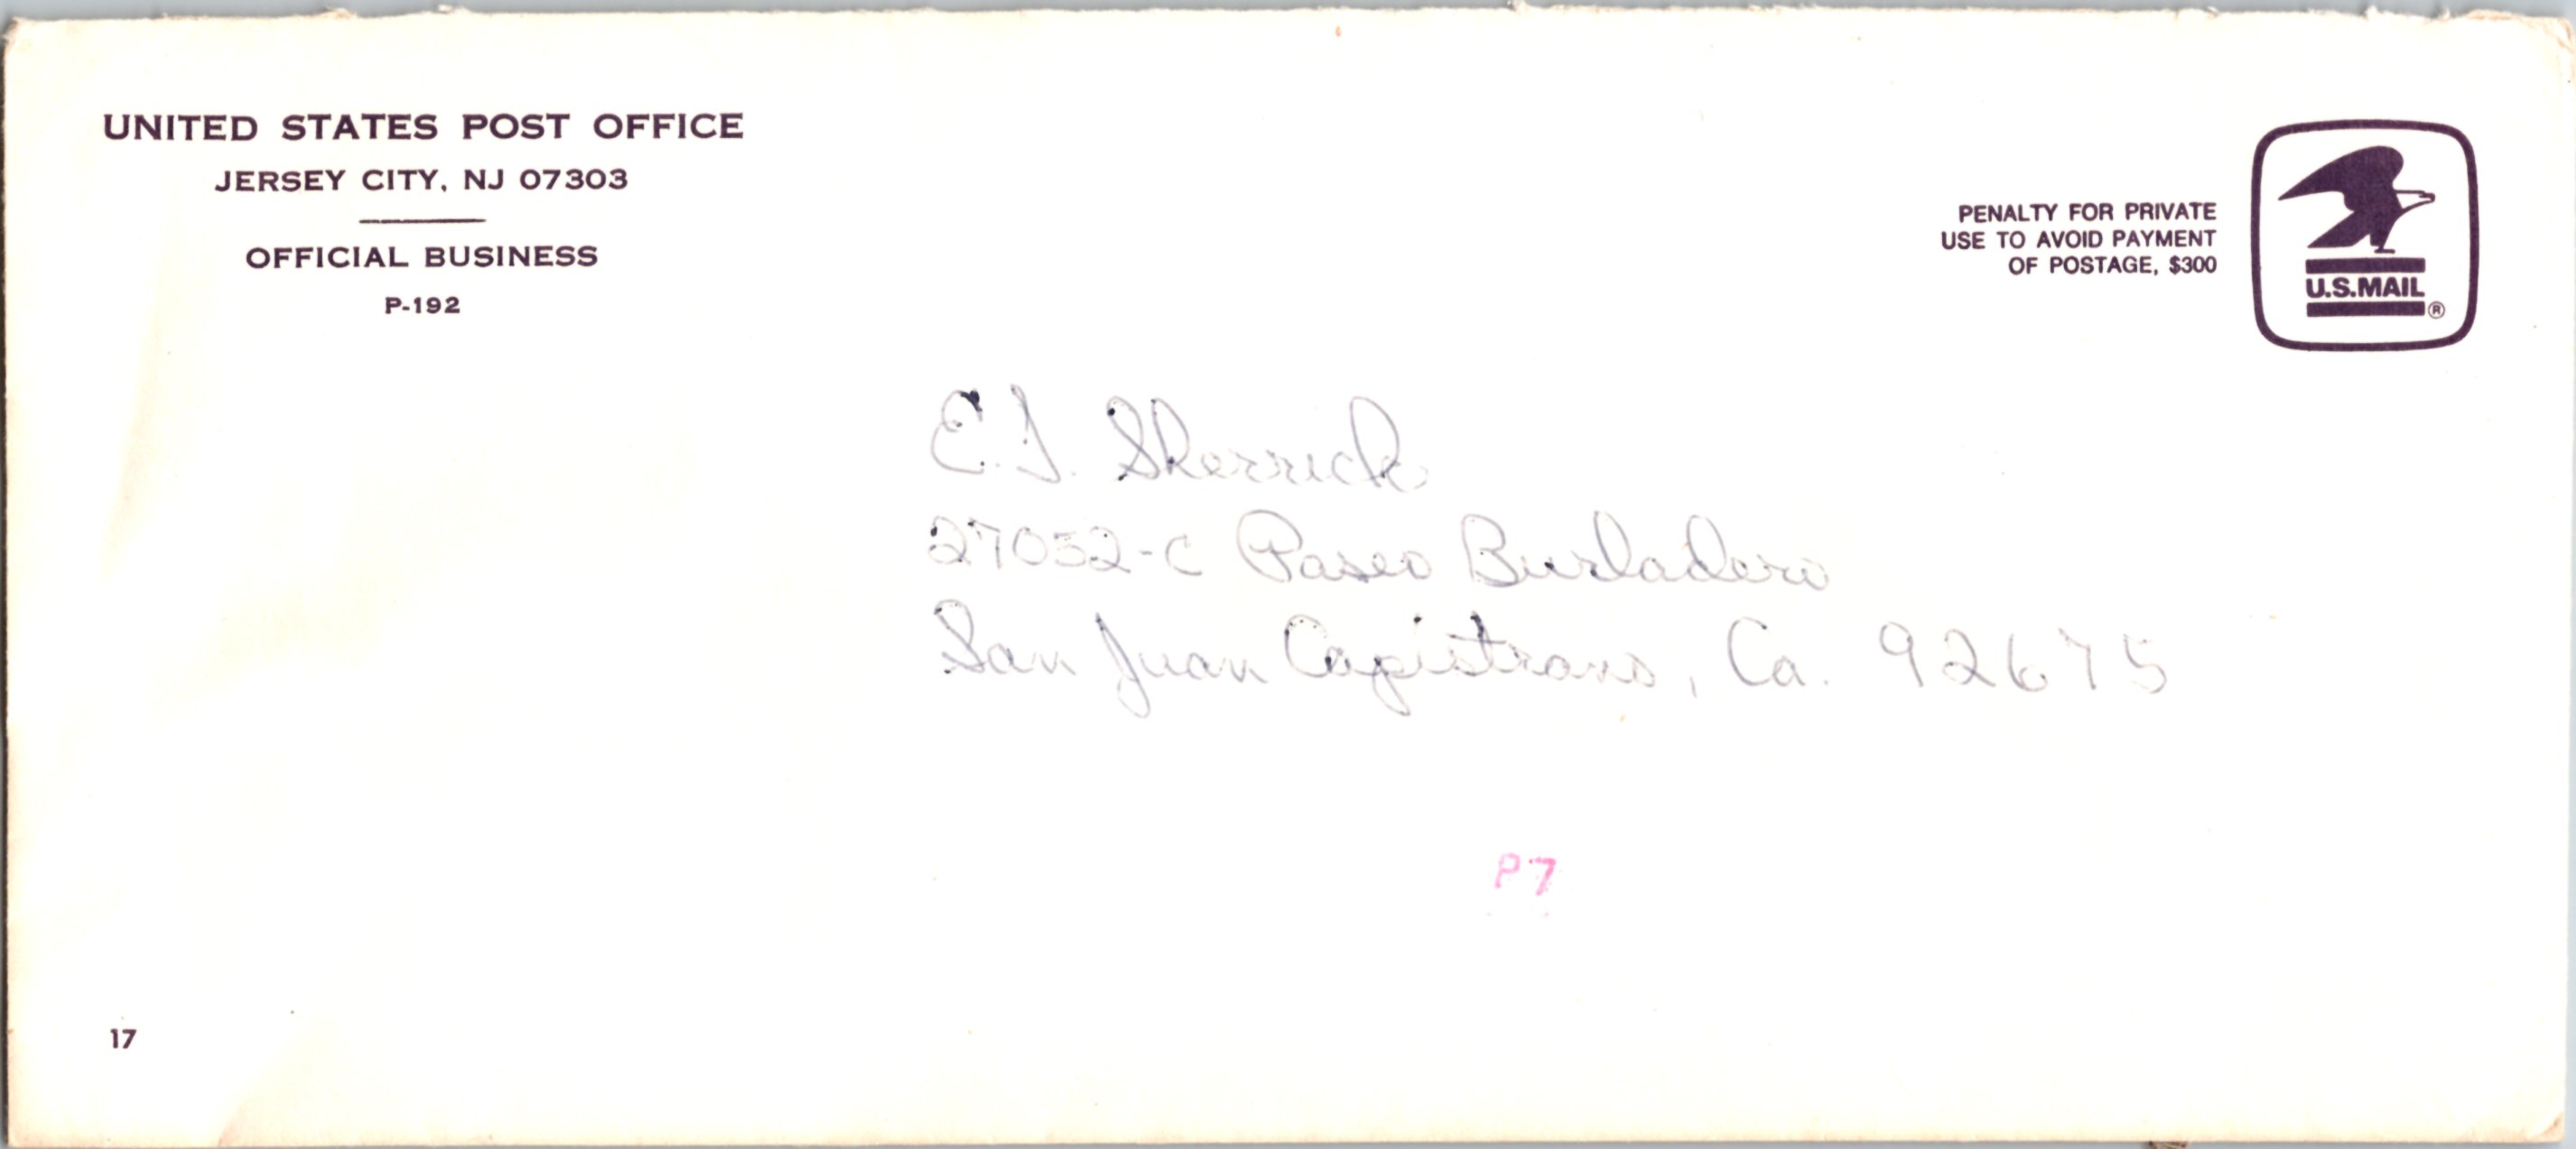 UNITED STATES POST OFFICE
JERSEY CITY, NJ 07303
OFFICIAL BUSINESS
P-192
PENALTY FOR PRIVATE
USE TO AVOID PAYMENT
OF POSTAGE, $300
U.S.MAIL ®
E.J. Sherrick
27052-C Paseo Burladero
San Juan Capistrano, Ca. 92675
P7
17